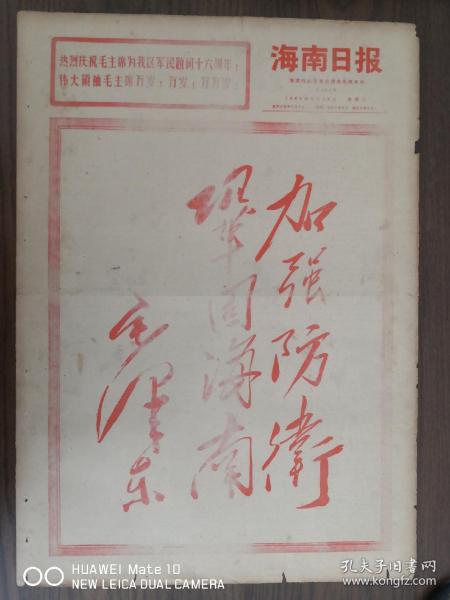 热烈庆祝毛主席为我区军民题词十六周年!
伟大领袖毛主席万岁!万岁!万万岁!
海南日报
加强防衛
巩固海南
毛泽东
HUAWEI Mate 10
NEW LEICA DUAL CAMERA
孔夫子旧书网